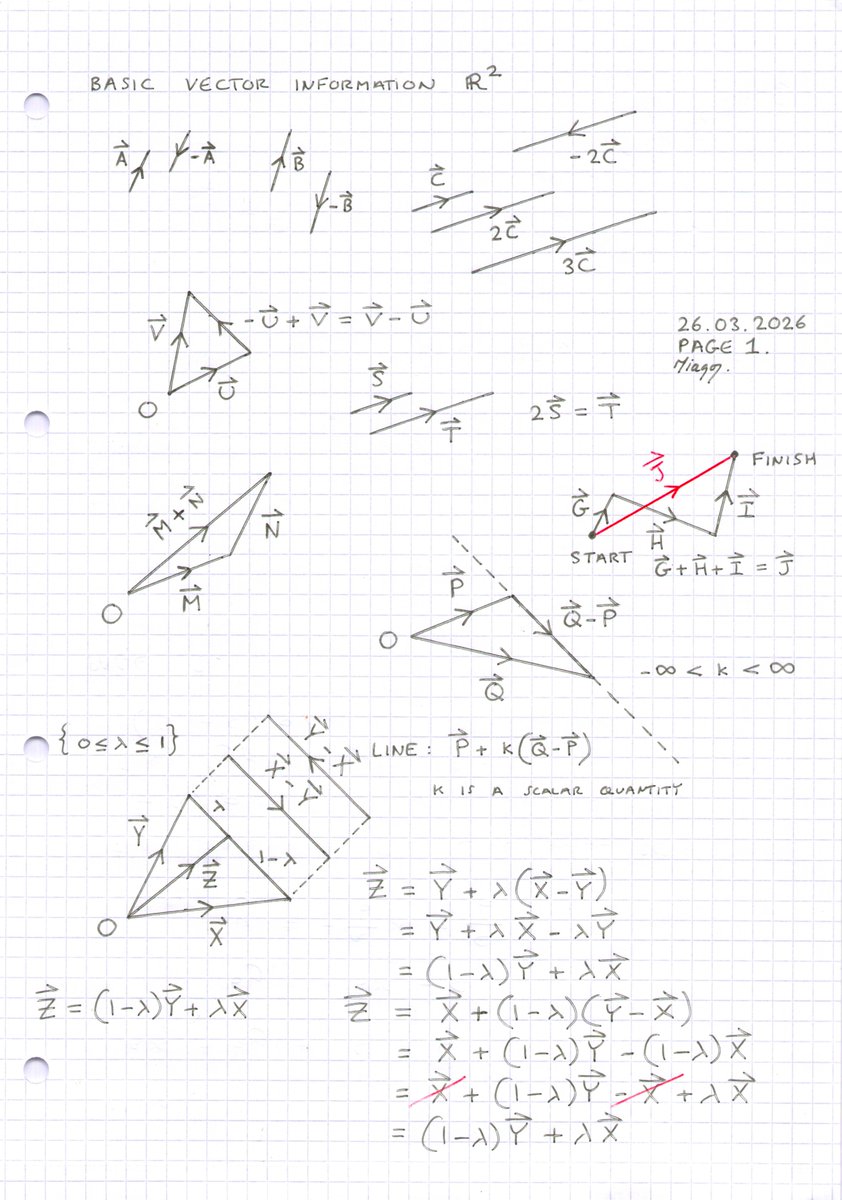 BASIC VECTOR INFORMATION ℝ²
A⃗ -A⃗ B⃗ -B⃗
-2C⃗
C⃗
2C⃗
3C⃗
V⃗ -U⃗ + V⃗ = V⃗ - U⃗
U⃗
O
26.03.2026
PAGE 1.
S⃗
T⃗
2S⃗ = T⃗
M⃗ + N⃗
N⃗
M⃗
O
J⃗
FINISH
G⃗
H⃗
I⃗
START
G⃗ + H⃗ + I⃗ = J⃗
P⃗
Q⃗ - P⃗
O
Q⃗
-∞ < k < ∞
{0 ≤ λ ≤ 1}
Y⃗ - X⃗
X⃗ - Y⃗
LINE: P⃗ + k(Q⃗ - P⃗)
k IS A SCALAR QUANTITY
Y⃗
λ
1-λ
Z⃗
X⃗
O
Z⃗ = Y⃗ + λ(X⃗ - Y⃗)
= Y⃗ + λX⃗ - λY⃗
= (1-λ)Y⃗ + λX⃗
Z⃗ = (1-λ)Y⃗ + λX⃗
Z⃗ = X⃗ + (1-λ)(Y⃗ - X⃗)
= X⃗ + (1-λ)Y⃗ - (1-λ)X⃗
= X⃗ + (1-λ)Y⃗ - X⃗ + λX⃗
= (1-λ)Y⃗ + λX⃗